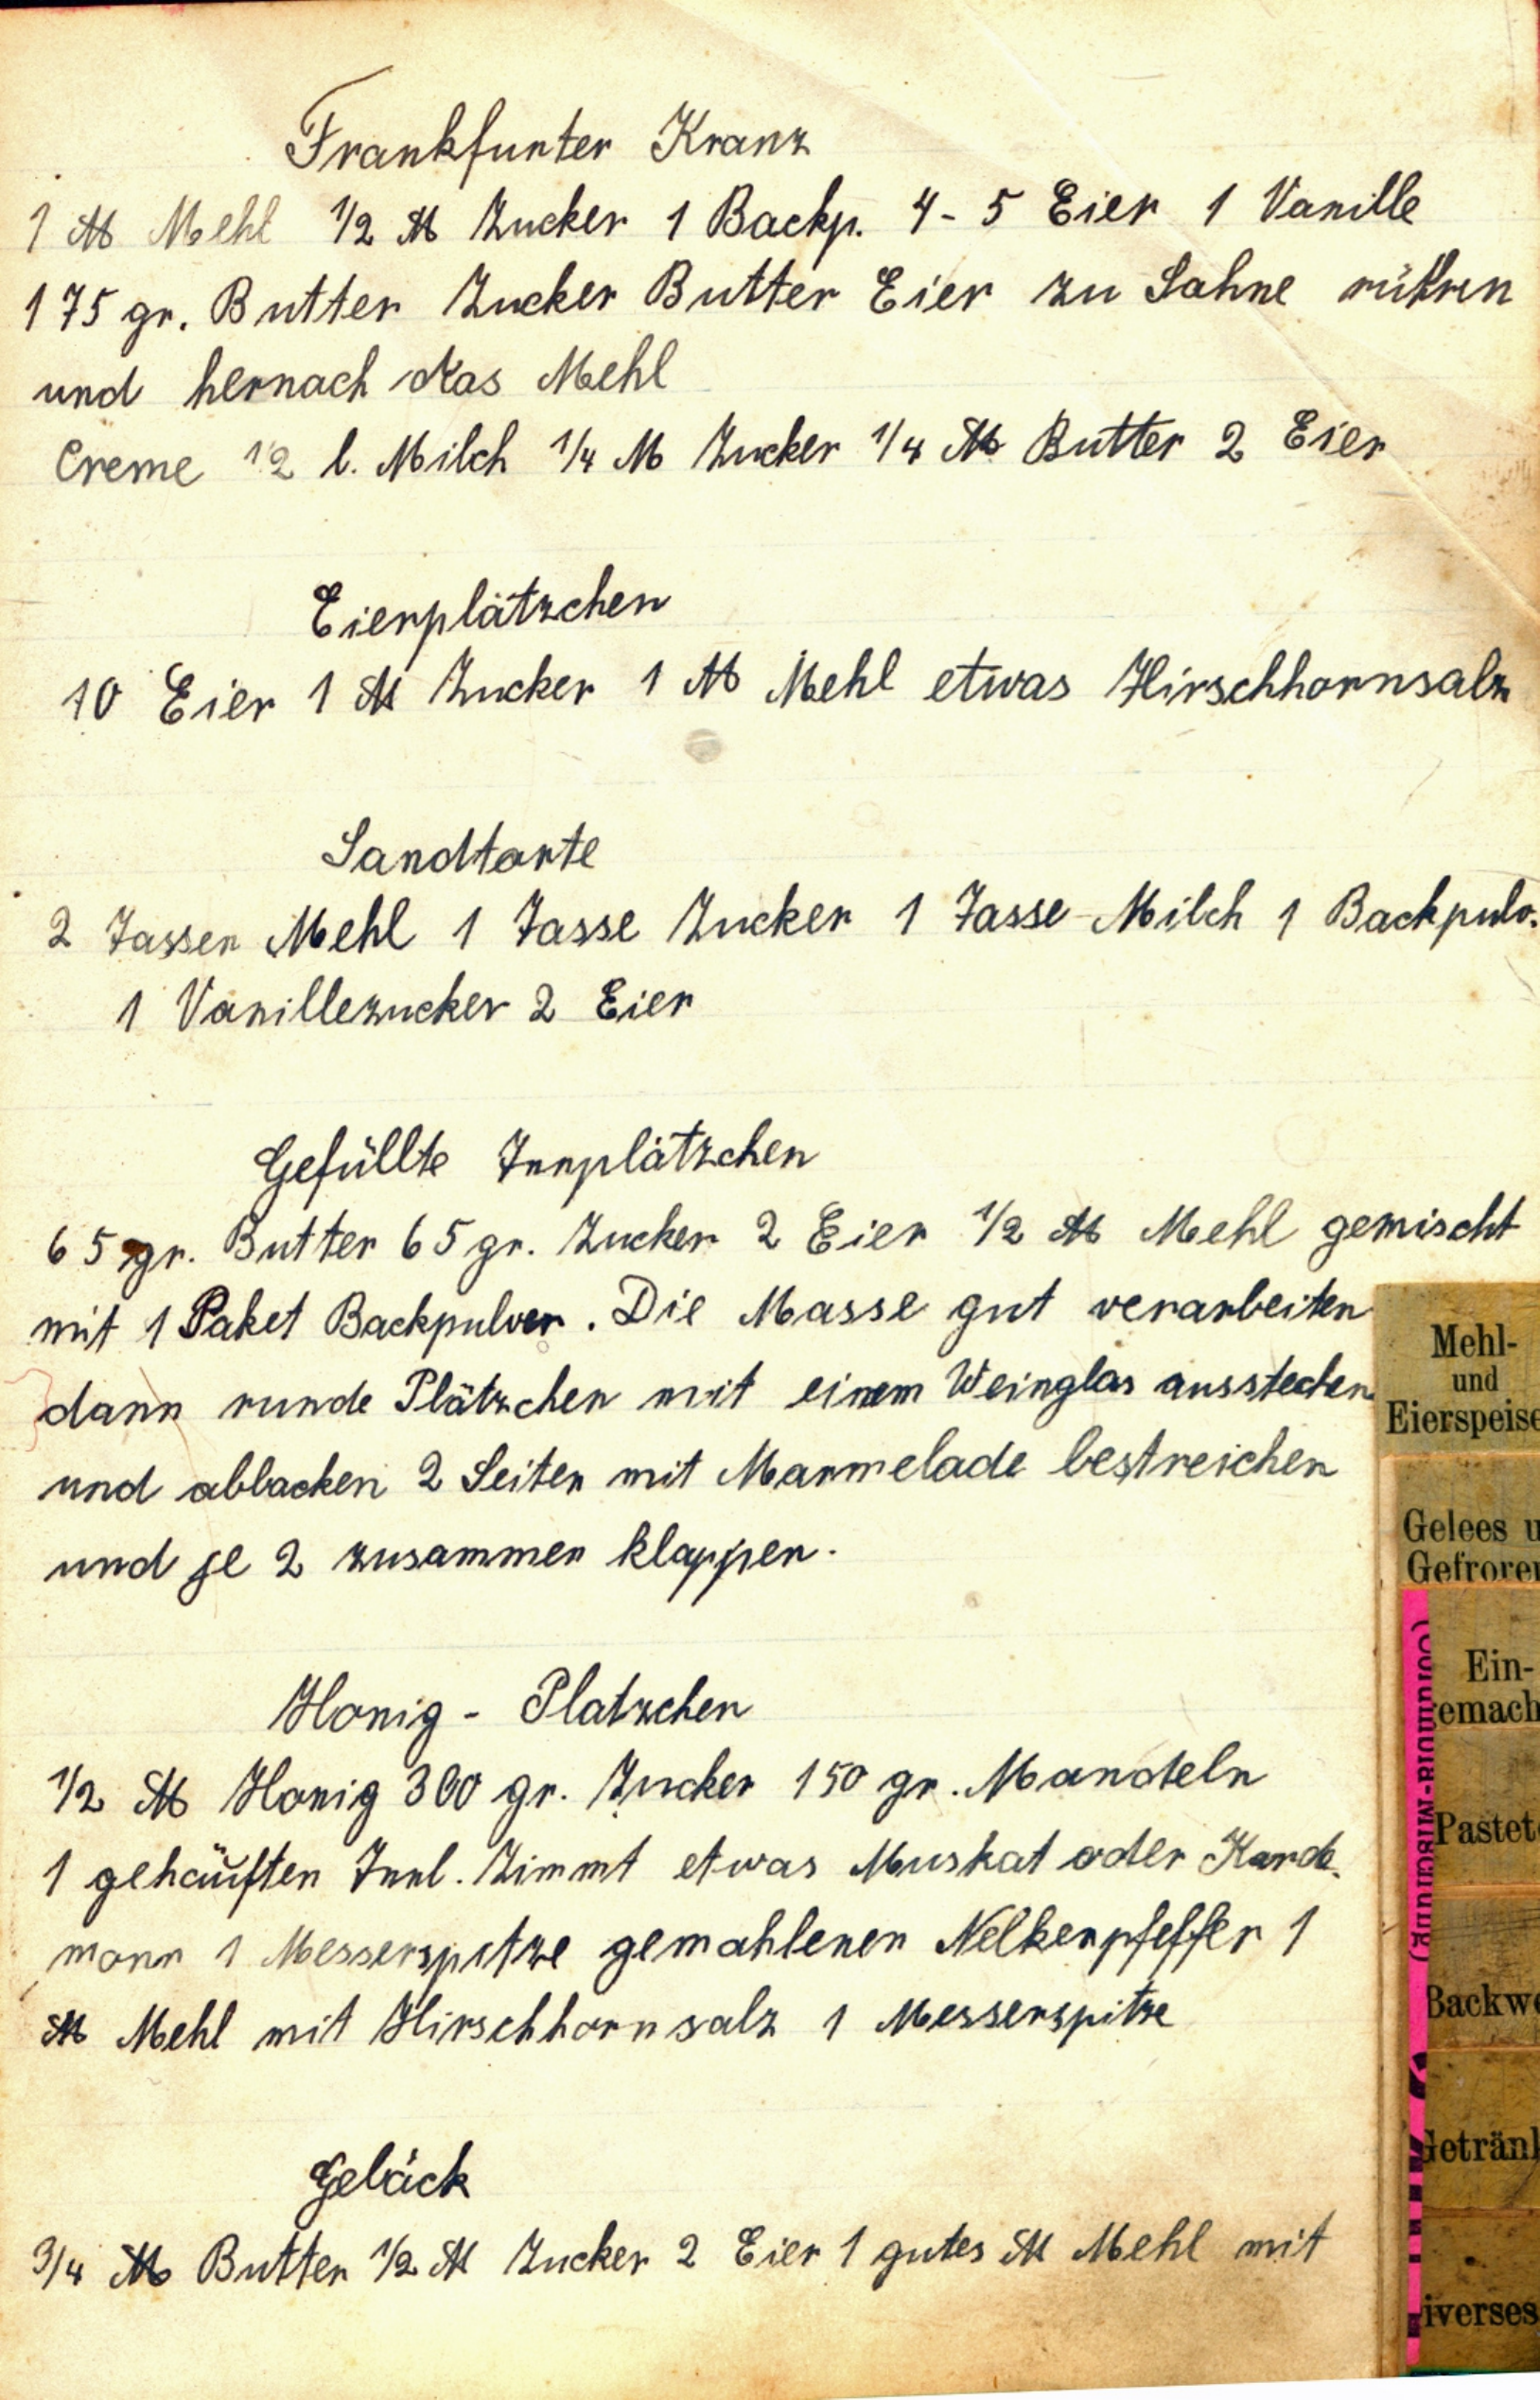 Frankfurter Kranz
1 ℔ Mehl 1/2 ℔ Zucker 1 Backp. 4-5 Eier 1 Vanille
175 gr. Butter Zucker Butter Eier zu Sahne rühren
und hernach das Mehl
Creme 1/2 l. Milch 1/4 ℔ Zucker 1/4 ℔ Butter 2 Eier
Eierplätzchen
10 Eier 1 ℔ Zucker 1 ℔ Mehl etwas Hirschhornsalz
Sandtorte
2 Tassen Mehl 1 Tasse Zucker 1 Tasse Milch 1 Backpulv.
1 Vanillezucker 2 Eier
Gefüllte
65 gr. Butter 65 gr. Zucker 2 Eier 1/2 ℔ Mehl gemischt
mit 1 Paket Backpulver. Die Masse gut verarbeiten
dann runde Plätzchen mit einem Weinglas ausstechen
und abbacken 2 Seiten mit Marmelade bestreichen
und je 2 zusammen klappen.
Honig - Platzchen
1/2 ℔ Honig 300 gr. Zucker 150 gr. Mandeln
1 gehäuften Zimmt etwas Muskat oder Karda
monn 1 Messerspitze gemahlenen Nelkenpfeffer 1
℔ Mehl mit Hirschhornsalz 1 Messerspitze
Gebäck
3/4 ℔ Butter 1/2 ℔ Zucker 2 Eier 1 gutes ℔ Mehl mit
Mehl-
und
Eierspeise
Gelees u
Gefroren
Ein-
emach
Pastet
Backw
Getränk
iverses